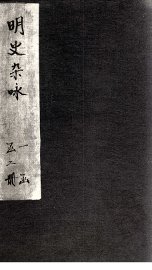 明史杂咏
一函
五二册